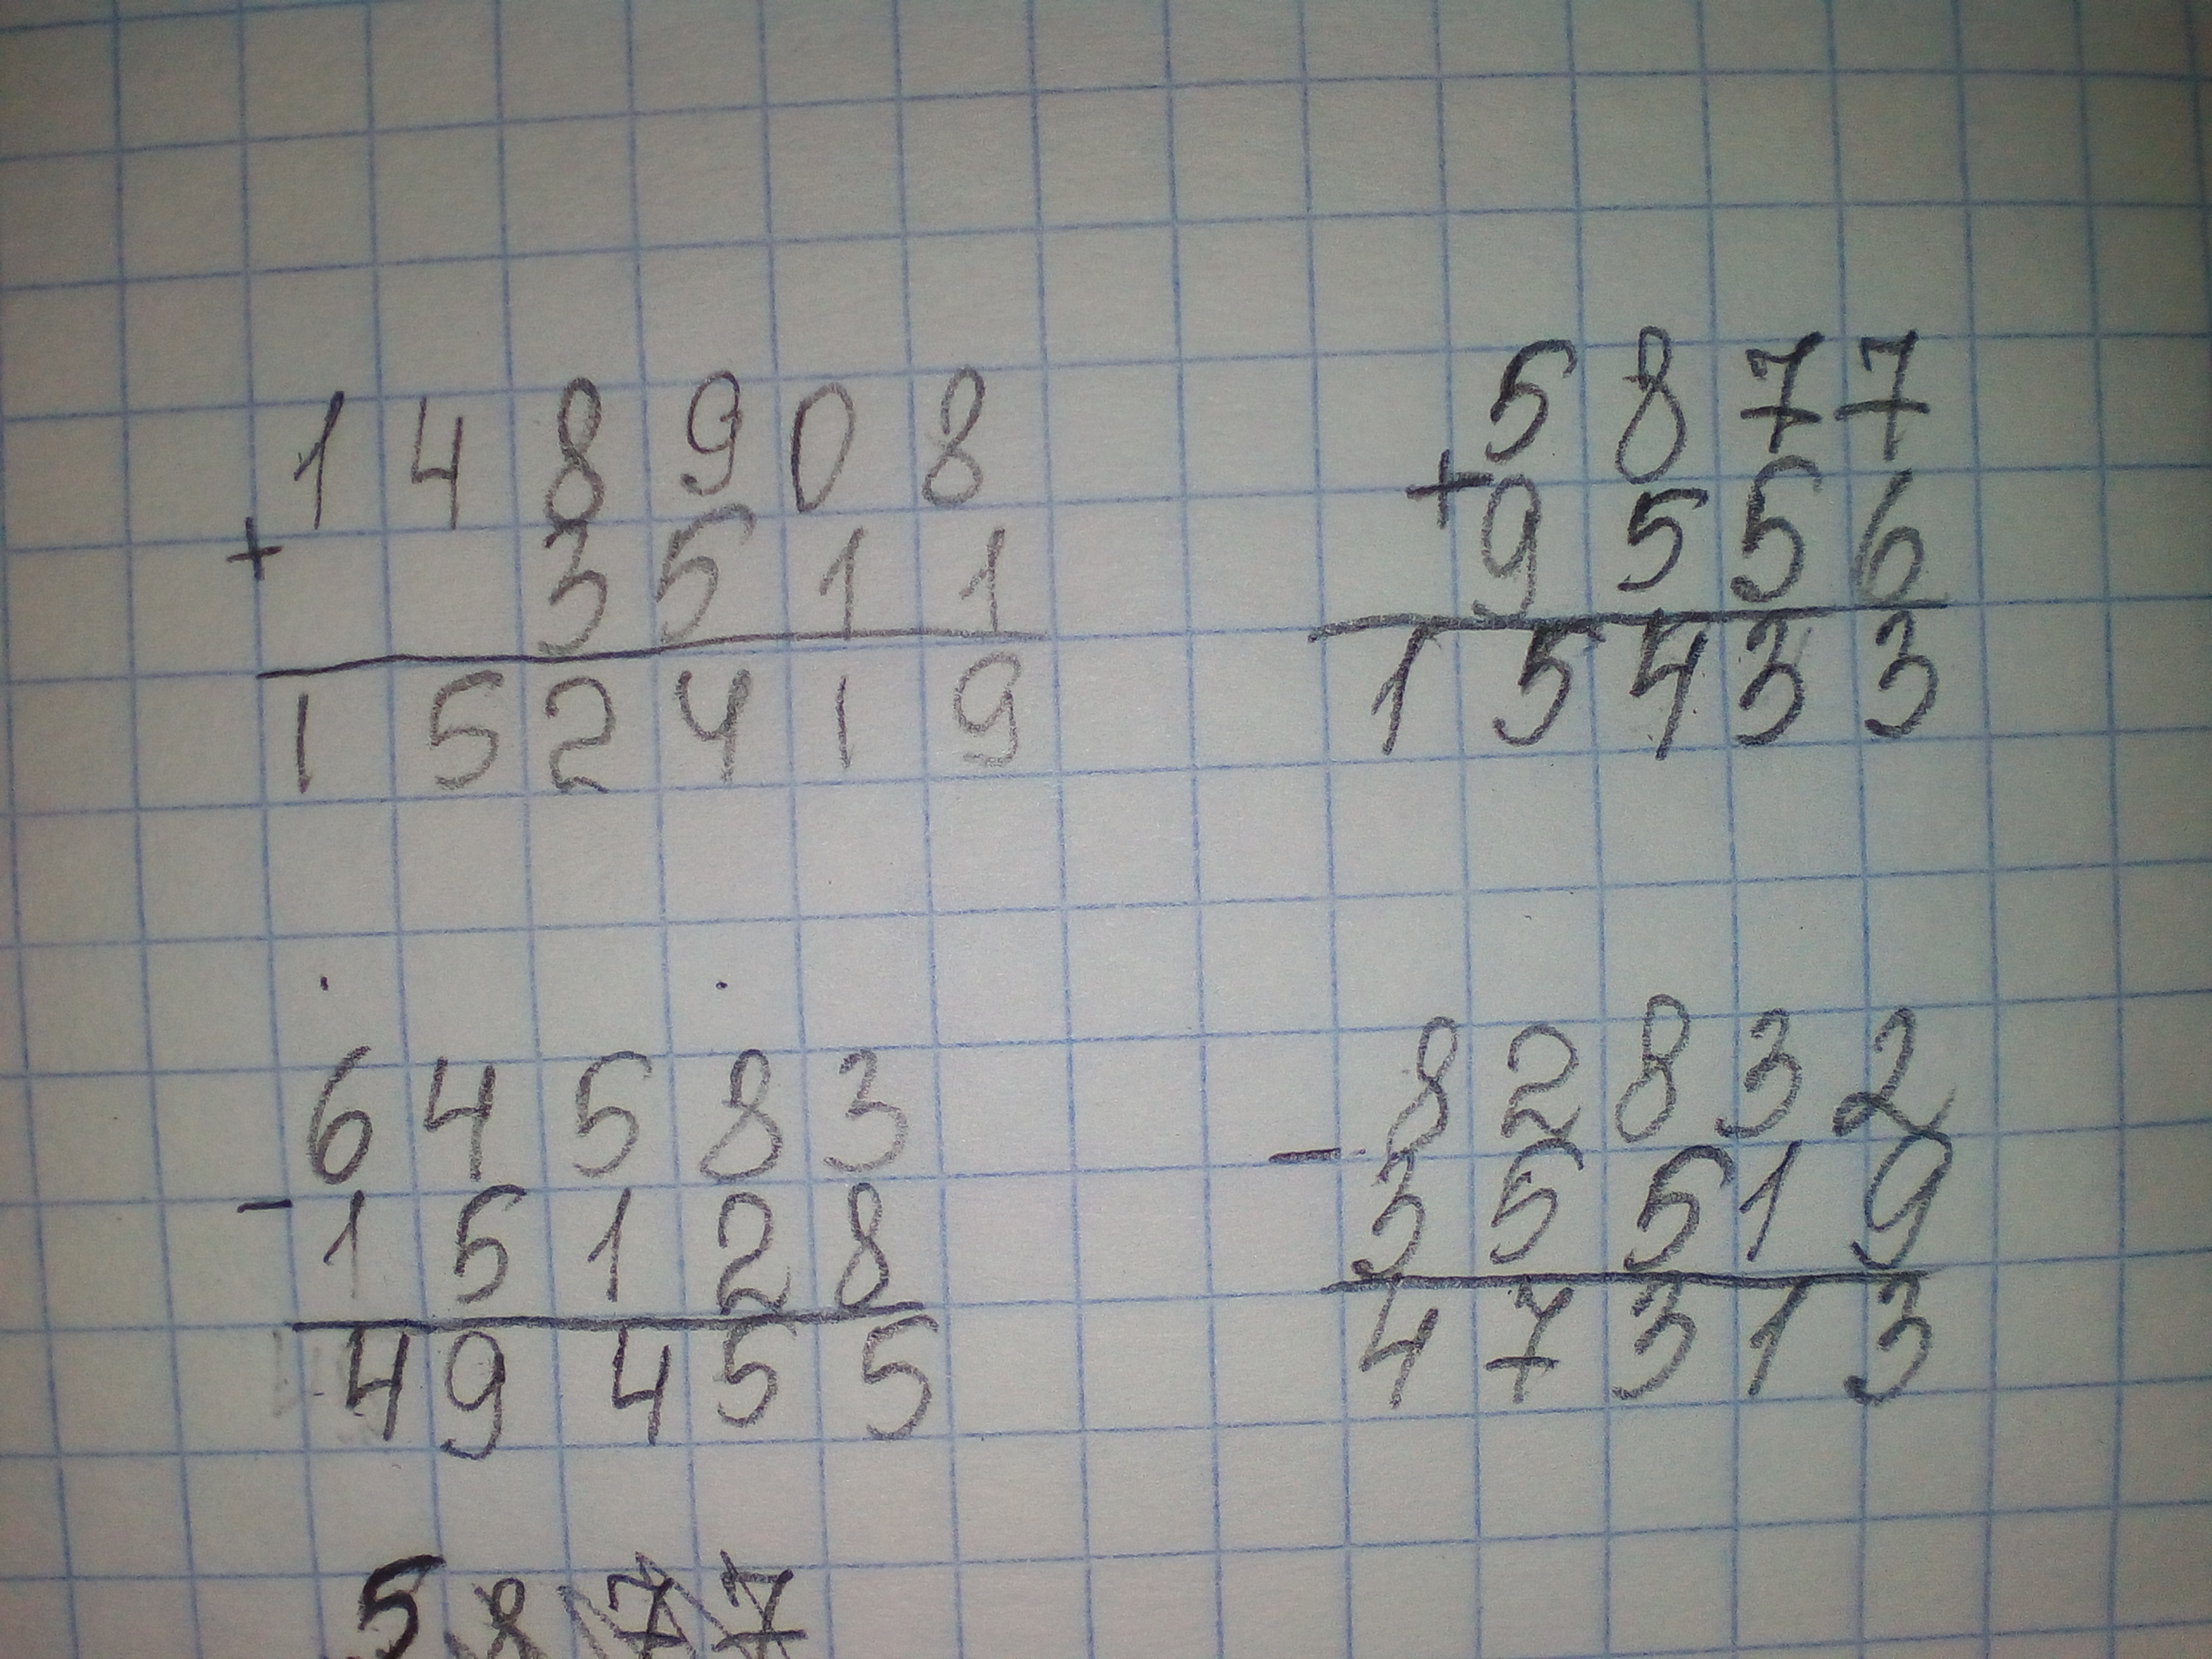 148908
+
3511
152419
5877
+
9556
15433
64583
-
15128
49455
82832
-
35519
47313
5877